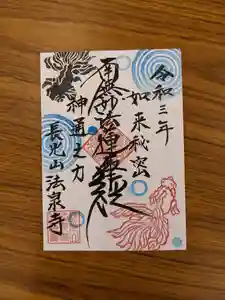 令和三年
如来秘密
南無妙法蓮華経
神通之力
長光山
法泉寺